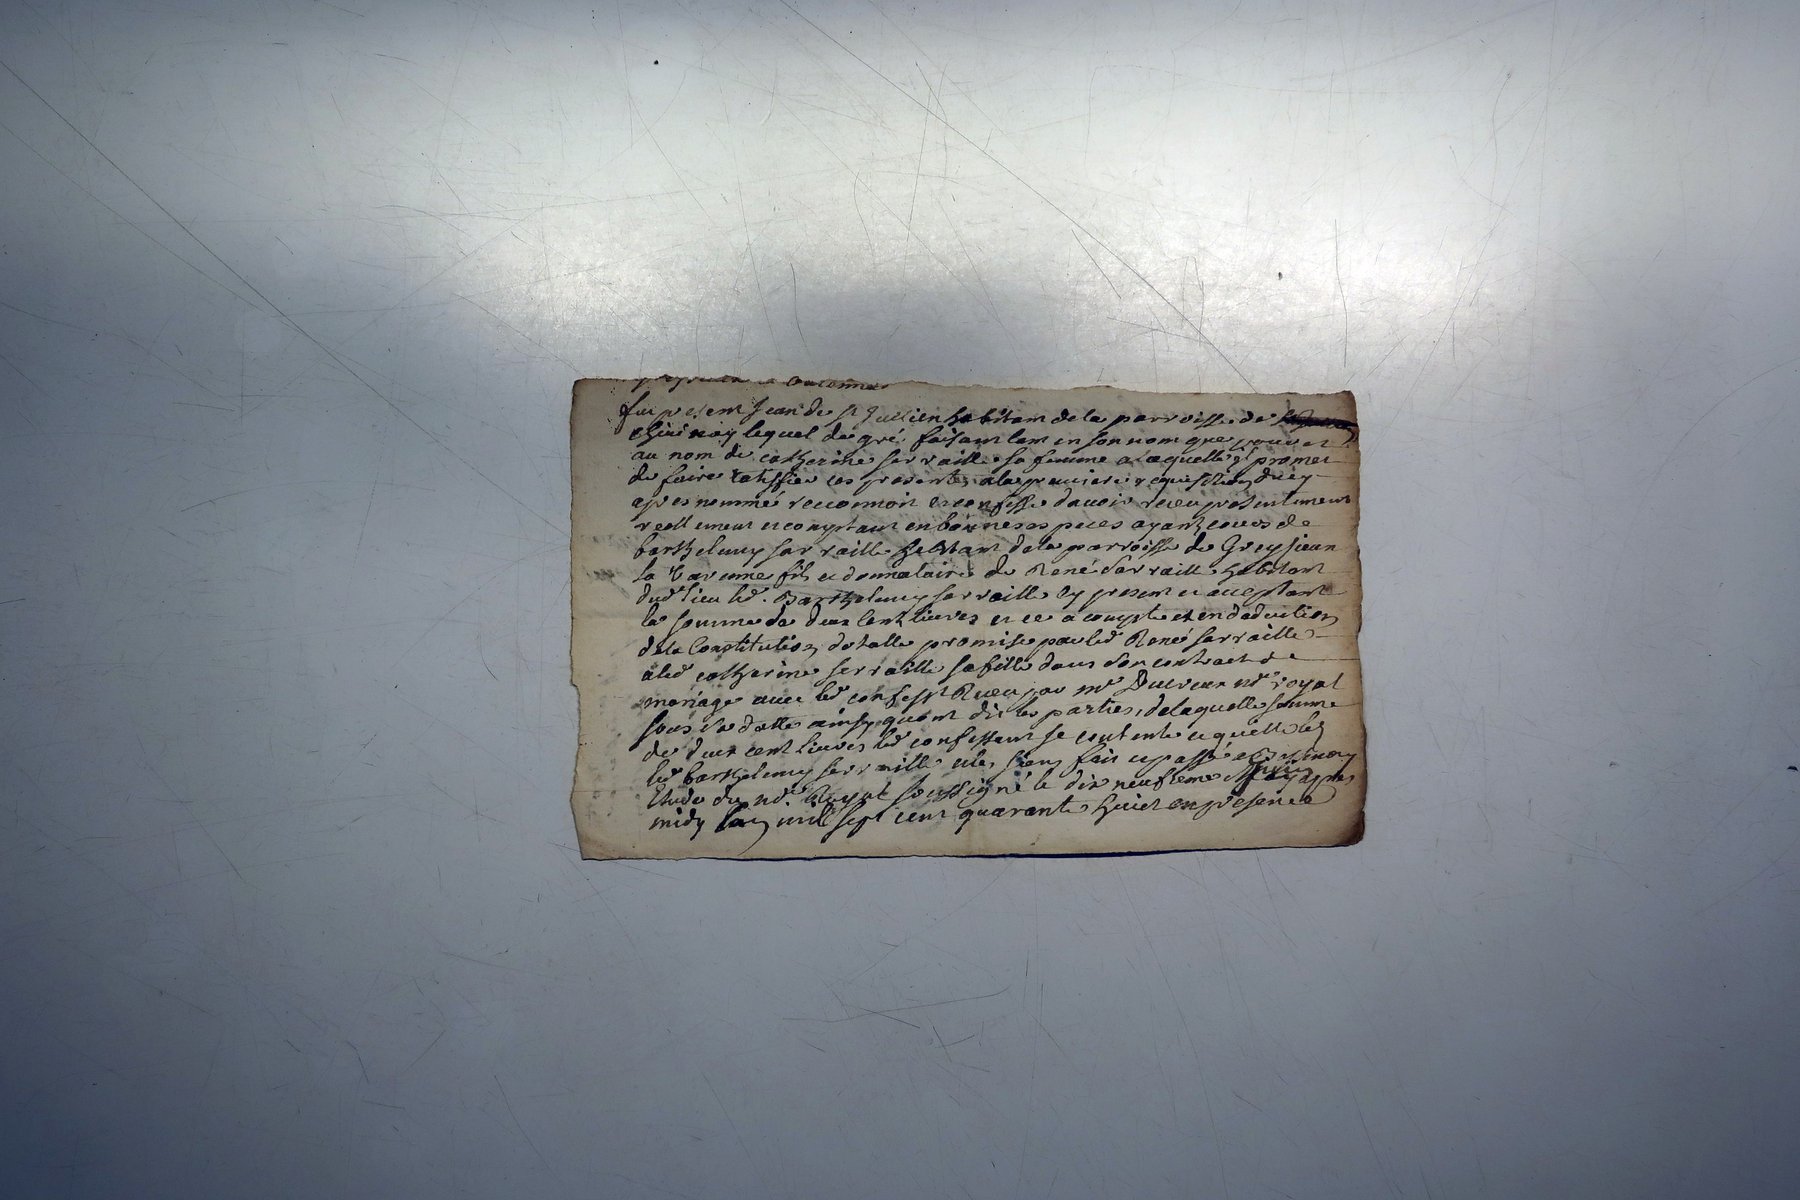 fut present Jean de St Jullien habitant de la parroisse de
chirinoy lequel de gré faisant tant en son nom que pour et
au nom de catherine serraille sa femme a laquelle jl promet
de faire ratiffier ces presentes a la premiere requisition du cy
apres nommé reconnoit et confesse davoir receu presentement
reellement et comptant en bonnes especes ayant cours de
barthelemy serraille habitant de la parroisse de Grezieu
la Varenne fils et donnataire de René Serraille habitant
dud. lieu led. Barthelemy serraille cy present et acceptant
la somme de deux cent livres et ce a compte et en deduction
de la Constitution dotalle promise par led René serraille
a lad catherine serraille sa fille dans son contract de
mariage avec led confesst Receu par me nre royal
sous sa datte ainsy quont dit les parties, de laquelle somme
de deux cent livres led confessant se contente et quitte led
led barthelemy serraille et les siens fait et passé a
Etude du nre. Royal soussigné le dix neufieme apres
midy lan mille sept cent quarante huict en presence